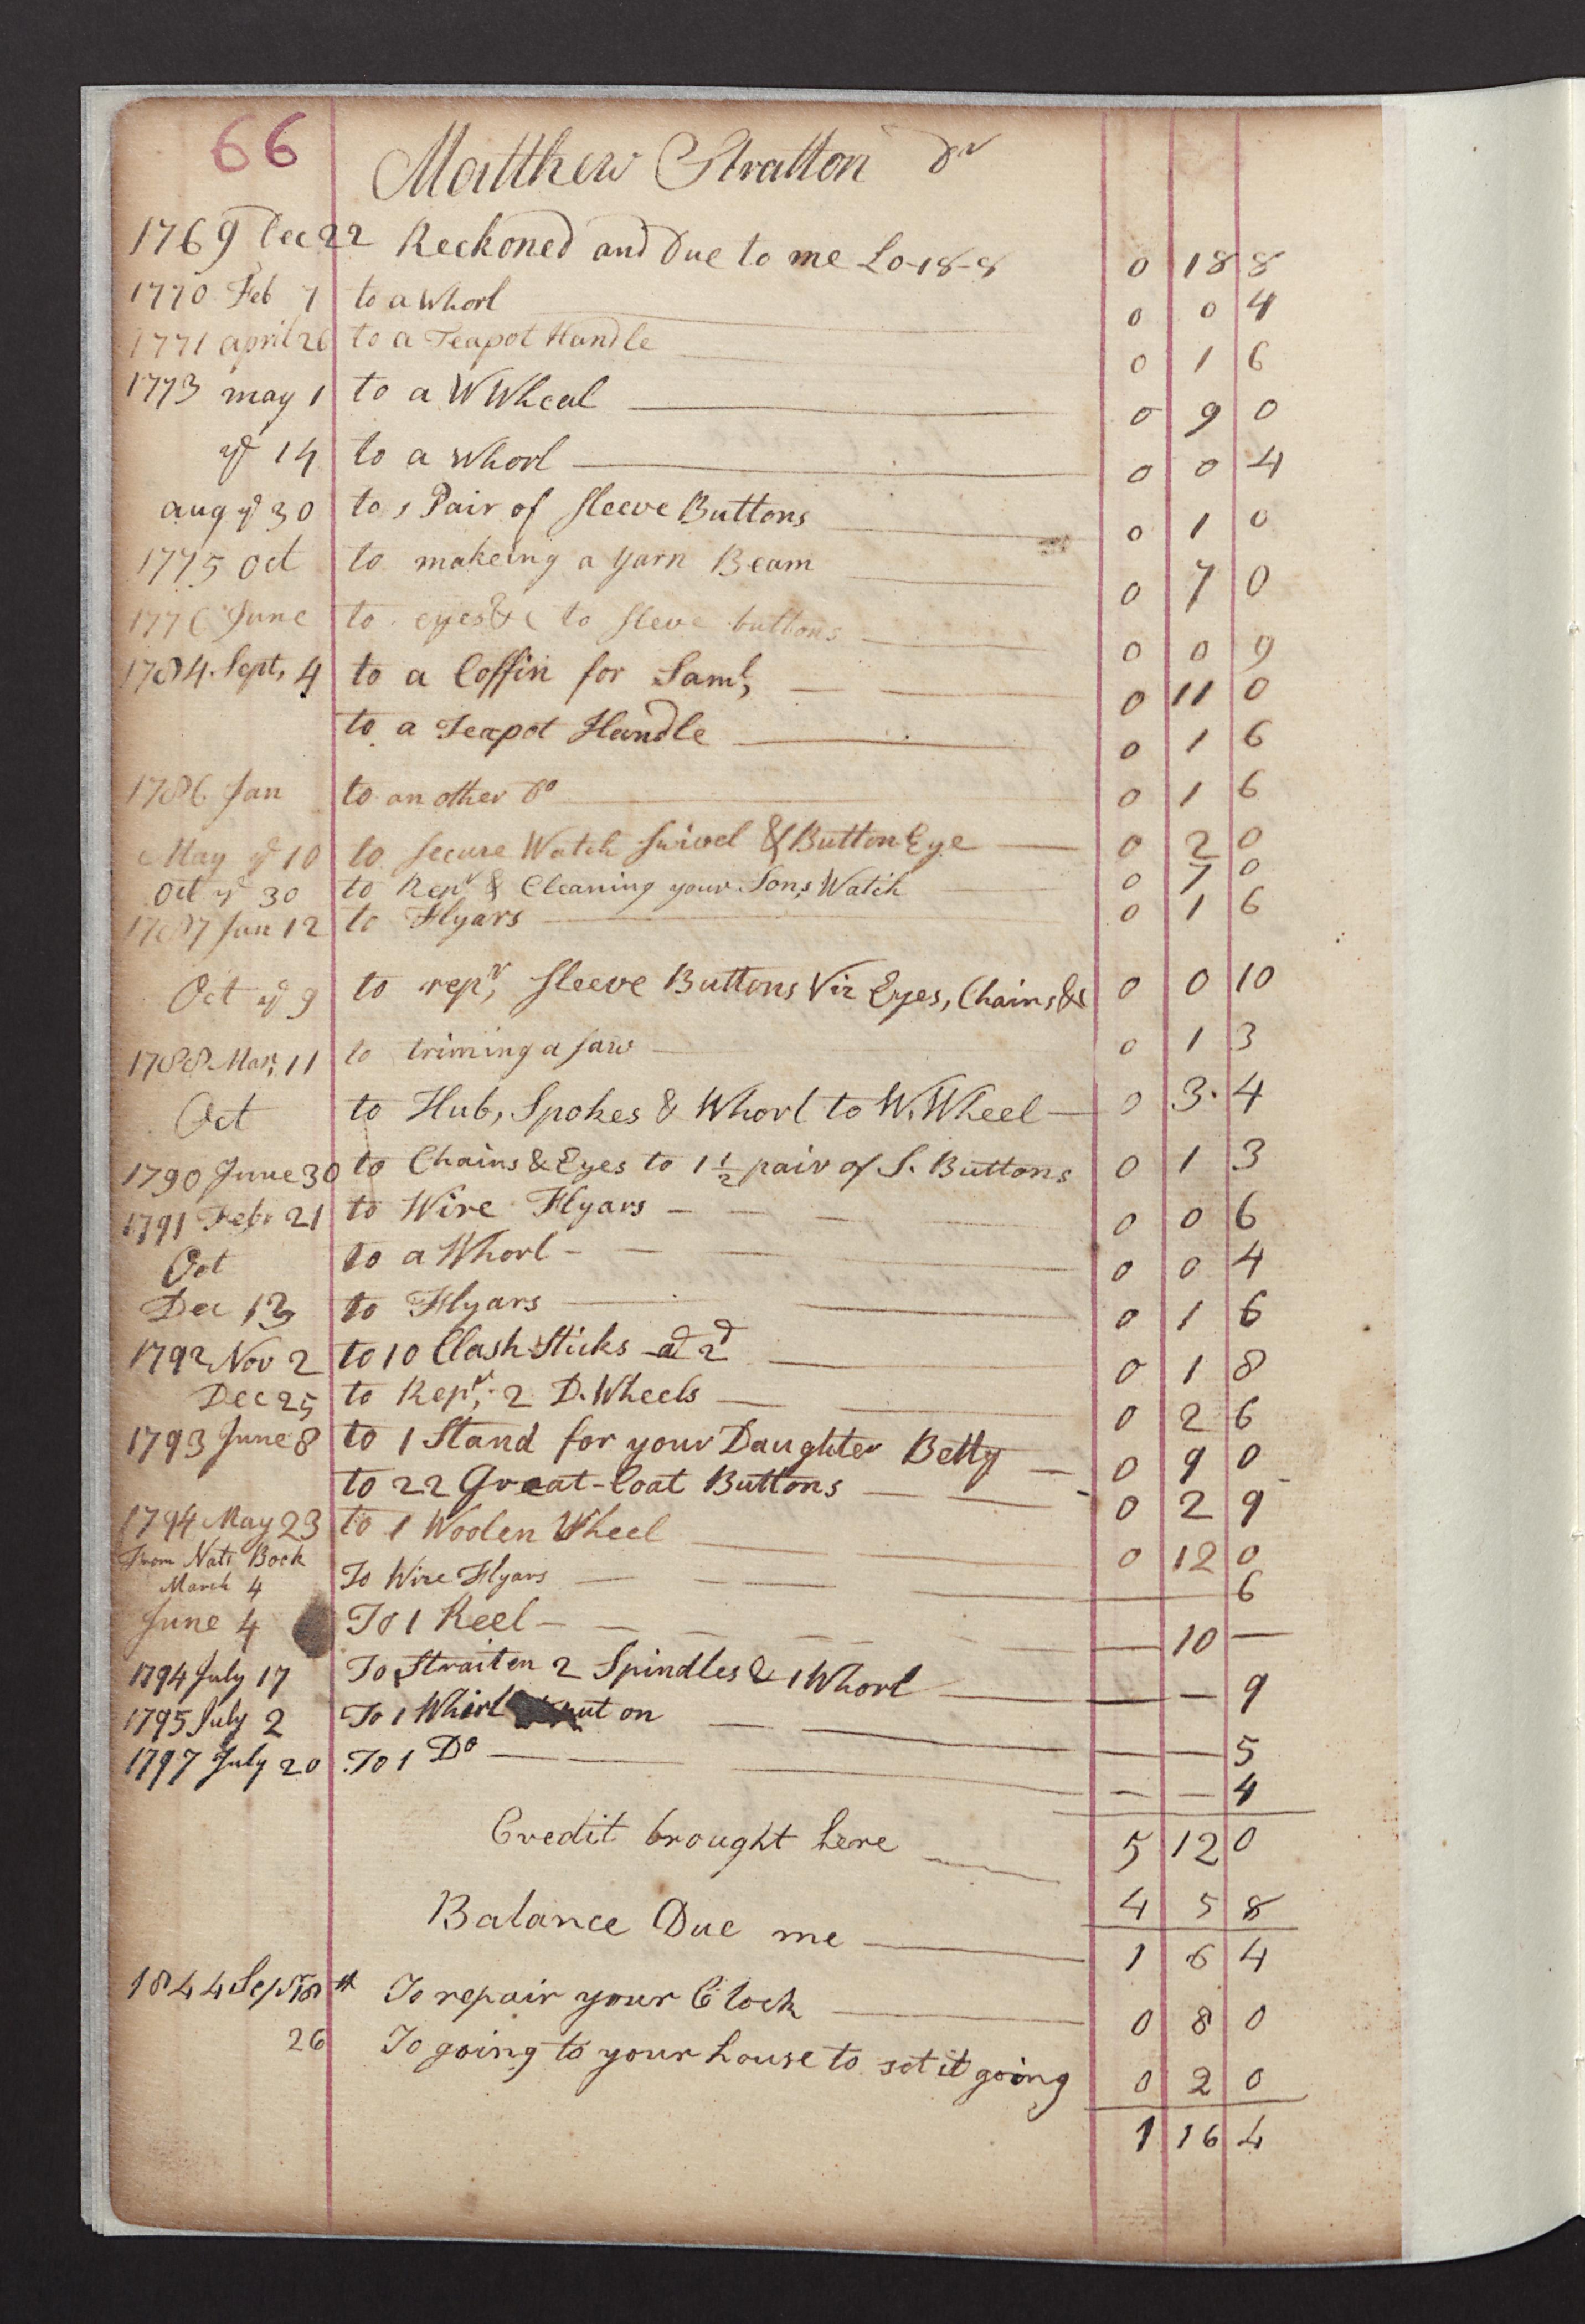 66
Matthew Stratton Dr
1769 Dec 22 Reckoned and Due to me £0-18-8 0 18 8
1770 Feb 7 to a Whorl 0 0 4
1771 april 26 to a Teapot Handle 0 1 6
1773 may 1 to a W Wheal 0 9 0
ye 14 to a Whorl 0 0 4
aug ye 30 to 1 Pair of Sleeve Buttons 0 1 0
1775 Oct to makeing a Yarn Beam 0 7 0
1776 June to eyes &c to Sleve buttons 0 0 9
1784. Sept, 4 to a Coffin for Saml, 0 11 0
to a Teapot Handle 0 1 6
1786 Jan to an other Do 0 1 6
May ye 10 to Secure Watch Swivel & Button Eye 0 2 0
Oct ye 30 to Repr & Cleaning your Sons, Watch 0 7 0
1787 Jan 12 to Flyars 0 1 6
Oct ye 9 to repr, Sleeve Buttons Viz Eyes, Chains &c 0 0 10
1788 Mar, 11 to triming a Saw 0 1 3
Oct to Hub, Spokes & Whorl to W. Wheel 0 3 4
1790 June 30 to Chains & Eyes to 1 1/2 pair of S. Buttons 0 1 3
1791 Febr 21 to Wire Flyars 0 0 6
Oct to a Whorl 0 0 4
Dec 13 to Flyars 0 1 6
1792 Nov 2 to 10 Clash-Sticks at 2d 0 1 8
Dec 25 to Repr, 2 D. Wheels 0 2 6
1793 June 8 to 1 Stand for your Daughter Betty 0 9 0
to 22 Great-Coat Buttons 0 2 9
1794 May 23 to 1 Woolen Wheel 0 12 0
From Nats Book
March 4 To Wire Flyars 6
June 4 To 1 Reel 10 —
1794 July 17 To Straiten 2 Spindles & 1 Whorl — — 9
1795 July 2 To 1 Whirl put on — — 5
1797 July 20 To 1 Do — — 4
5 12 0
Credit brought here 4 5 8
Balance Due me 1 6 4
1844 Sept 18 To repair your Clock 0 8 0
26 To going to your house to set it going 0 2 0
1 16 4